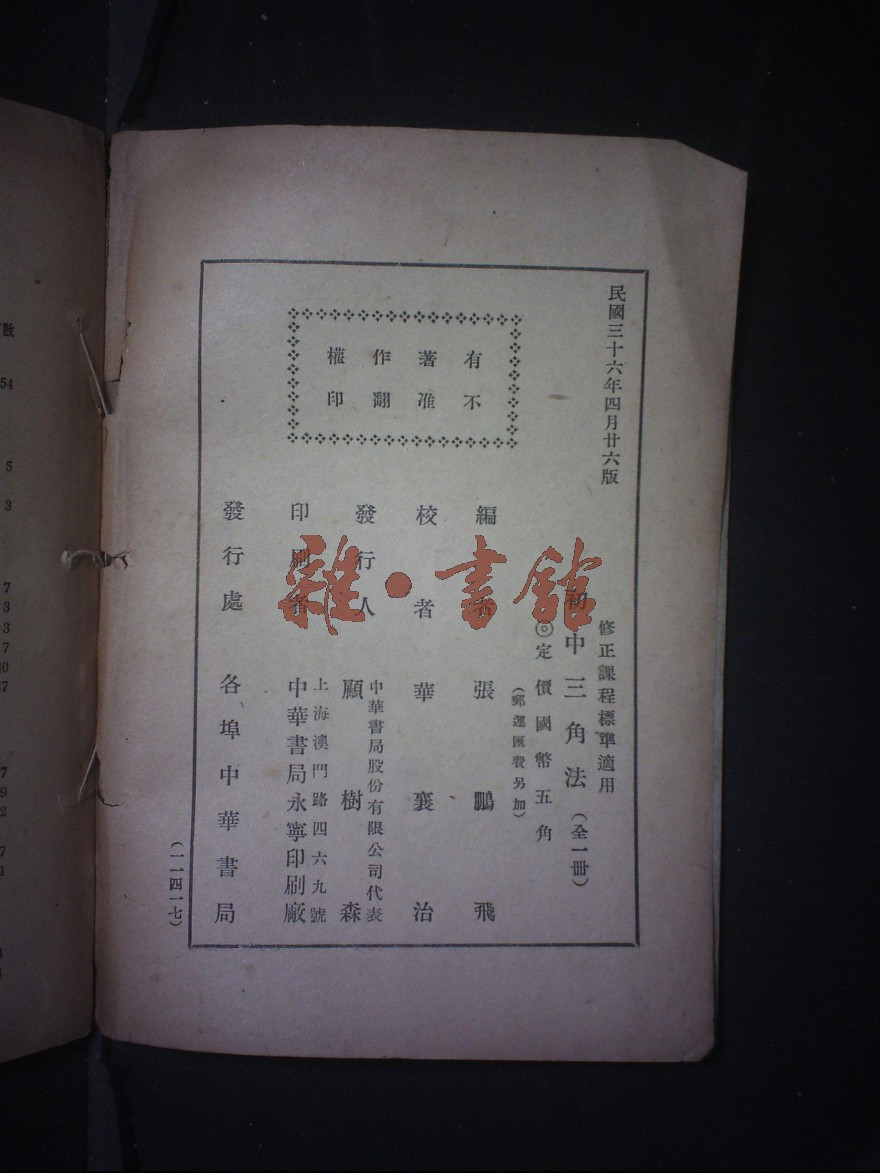 民國三十六年四月廿六版
修正課程標準適用
初中三角法(全一冊)
◎定價國幣五角
(郵運匯費另加)
有著作權
不准翻印
編者 張鵬飛
校者 華襄治
發行人 中華書局股份有限公司代表
顧樹森
印刷者 上海澳門路四六九號
中華書局永寧印刷廠
發行處 各埠中華書局
(一一四一七)
雜·書館
數
54
5
3
7
3
3
7
7
9
2
7